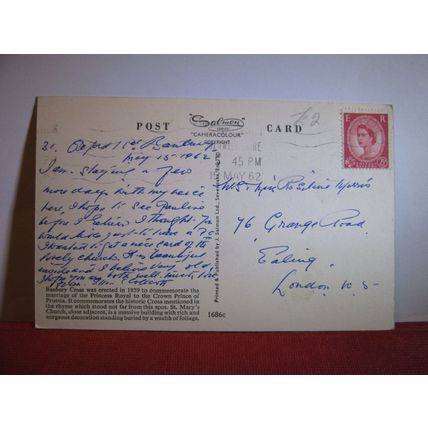 £2
POST CARD
Salmon
SERIES
"CAMERACOLOUR"
COPYRIGHT
E R
45 PM
15 MAY 62
Oxford Rd Banbury
May 15 - 1962
I am staying a few
more days with my niece
here, I hope to see Pauline
before I return. I thought
I wanted to get a nice card of the
lovely church. It is beautiful
inside and I believe very old
Hope you are both well. much love
76 Grange Road
Ealing
London W. 5-
Printed & Published by J. Salmon Ltd., Sevenoaks, England
Banbury Cross was erected in 1859 to commemorate the
marriage of the Princess Royal to the Crown Prince of
Prussia. It commemorates the historic Cross mentioned in
the rhyme which stood not far from this spot. St. Mary's
Church, close adjacent, is a massive building with rich and
gorgeous decoration standing buried by a wealth of foliage.
1686c